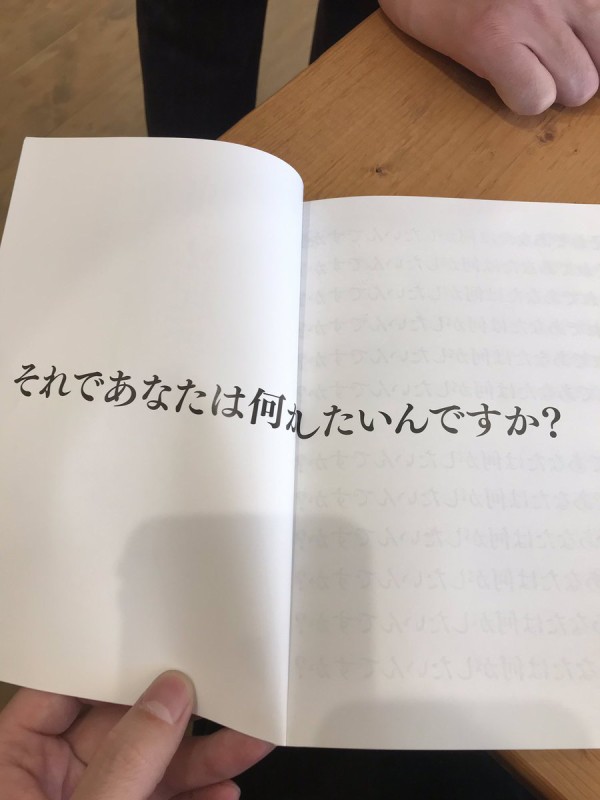 それであなたは何がしたいんですか?